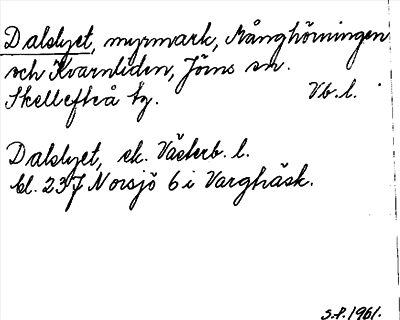 Dalslyet, myrmark, Månghörningen
och Kvarnliden, Jörns sn.
Skellefteå tg. Vb. l.
Dalslyet, ek. Västerb. l.
bl. 237 Norsjö 6 i Vargträsk.
S.P. 1961.